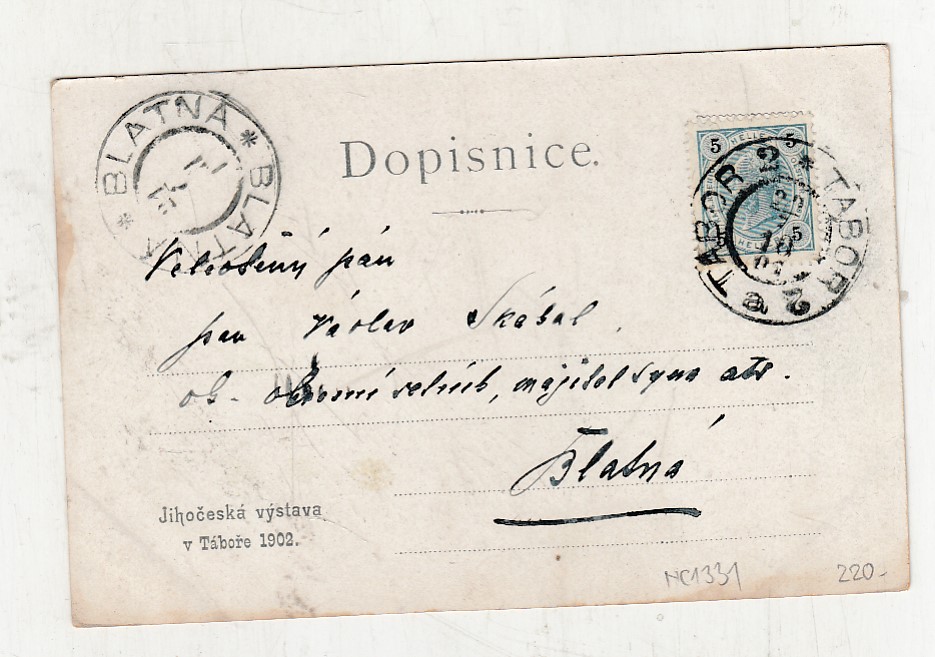 BLATNÁ * BLATNÁ *
Dopisnice.
5 HELLER 5
5
TÁBOR 2 * TÁBOR 2 a
Velectěný pán
pan Václav Skábal,
ob. okresní, majitel atd.
Blatná
Jihočeská výstava
v Táboře 1902.
NC1331
220-